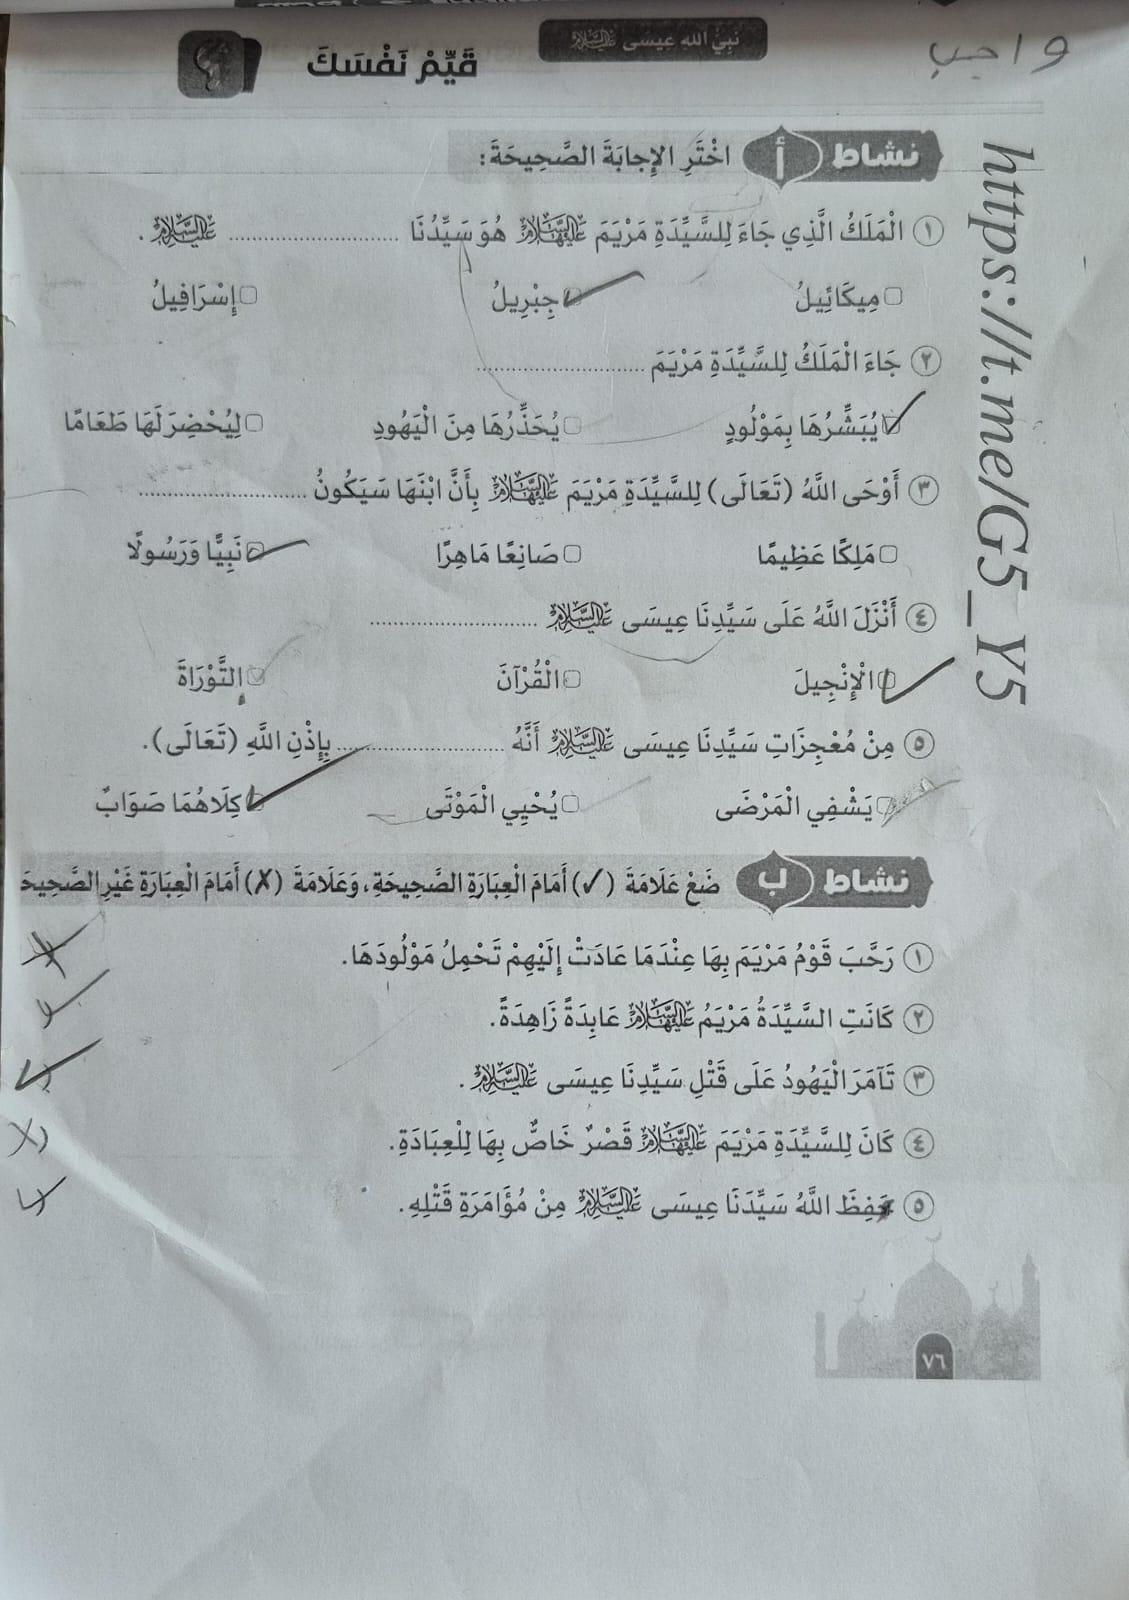 نَبِيُّ اللهِ عِيسَى عَلَيْهِ السَّلَامُ
واجب
قَيِّمْ نَفْسَكَ
https://t.me/G5_Y5
نشاط أ اخْتَرِ الإِجابَةَ الصَّحِيحَةَ:
١ الْمَلَكُ الَّذِي جَاءَ لِلسَّيِّدَةِ مَرْيَمَ عَلَيْهَا السَّلَامُ هُوَ سَيِّدُنَا .......................... عَلَيْهِ السَّلَامُ .
مِيكَائِيلُ جِبْرِيلُ إِسْرَافِيلُ
٢ جَاءَ الْمَلَكُ لِلسَّيِّدَةِ مَرْيَمَ ..........................
يُبَشِّرُهَا بِمَوْلُودٍ يُحَذِّرُهَا مِنَ الْيَهُودِ لِيُحْضِرَ لَهَا طَعَامًا
٣ أَوْحَى اللَّهُ (تَعَالَى) لِلسَّيِّدَةِ مَرْيَمَ عَلَيْهَا السَّلَامُ بِأَنَّ ابْنَهَا سَيَكُونُ ..........................
مَلِكًا عَظِيمًا صَانِعًا مَاهِرًا نَبِيًّا وَرَسُولًا
٤ أَنْزَلَ اللَّهُ عَلَى سَيِّدِنَا عِيسَى عَلَيْهِ السَّلَامُ ..........................
الْإِنْجِيلَ الْقُرْآنَ التَّوْرَاةَ
٥ مِنْ مُعْجِزَاتِ سَيِّدِنَا عِيسَى عَلَيْهِ السَّلَامُ أَنَّهُ .......................... بِإِذْنِ اللَّهِ (تَعَالَى).
يَشْفِي الْمَرْضَى يُحْيِي الْمَوْتَى كِلَاهُمَا صَوَابٌ
نشاط ب ضَعْ عَلَامَةَ (✓) أَمَامَ الْعِبَارَةِ الصَّحِيحَةِ، وَعَلَامَةَ (✗) أَمَامَ الْعِبَارَةِ غَيْرِ الصَّحِيحَ
١ رَحَّبَ قَوْمُ مَرْيَمَ بِهَا عِنْدَمَا عَادَتْ إِلَيْهِمْ تَحْمِلُ مَوْلُودَهَا.
٢ كَانَتِ السَّيِّدَةُ مَرْيَمُ عَلَيْهَا السَّلَامُ عَابِدَةً زَاهِدَةً.
٣ تَآمَرَ الْيَهُودُ عَلَى قَتْلِ سَيِّدِنَا عِيسَى عَلَيْهِ السَّلَامُ .
٤ كَانَ لِلسَّيِّدَةِ مَرْيَمَ عَلَيْهَا السَّلَامُ قَصْرٌ خَاصٌّ بِهَا لِلْعِبَادَةِ.
٥ حَفِظَ اللَّهُ سَيِّدَنَا عِيسَى عَلَيْهِ السَّلَامُ مِنْ مُؤَامَرَةِ قَتْلِهِ.
٧٦